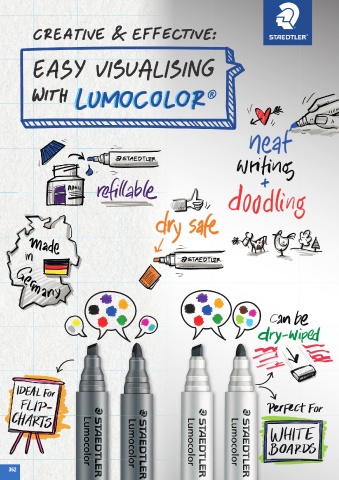 STAEDTLER®
CREATIVE & EFFECTIVE:
EASY VISUALISING
WITH LUMOCOLOR®
neat
writing
+
doodling
STAEDTLER
refillable
dry safe
STAEDTLER
made
in
Germany
can be
dry-wiped
IDEAL for
FLIP-
CHARTS
STAEDTLER
Lumocolor
STAEDTLER
Lumocolor
STAEDTLER
Lumocolor
STAEDTLER
Lumocolor
Perfect For
WHITE
BOARDS
362